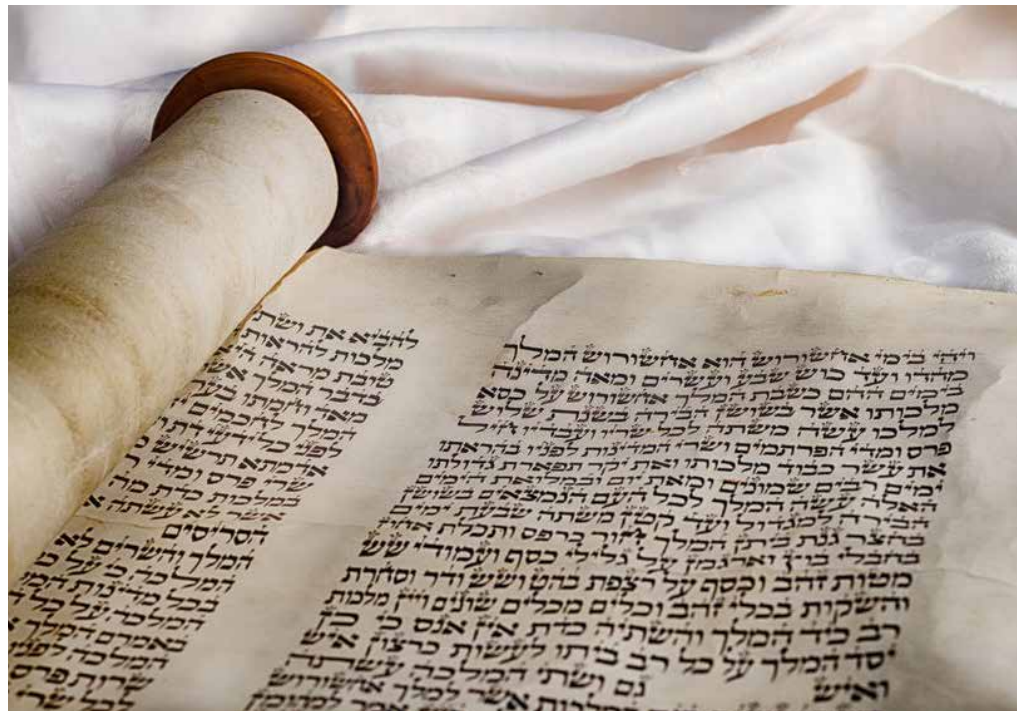 ויהי בימי אחשורוש הוא אחשורוש המלך
מהדו ועד כוש שבע ועשרים ומאה מדינה
בימים ההם כשבת המלך אחשורוש על כסא
מלכותו אשר בשושן הבירה בשנת שלוש
למלכו עשה משתה לכל שריו ועבדיו חיל
פרס ומדי הפרתמים ושרי המדינות לפניו בהראתו
את עשר כבוד מלכותו ואת יקר תפארת גדולתו
ימים רבים שמונים ומאת יום ובמלואת הימים
האלה עשה המלך לכל העם הנמצאים בשושן
הבירה למגדול ועד קטן משתה שבעת ימים
בחצר גנת ביתן המלך חור כרפס ותכלת אחוז
בחבלי בוץ וארגמן על גלילי כסף ועמודי שש
מטות זהב וכסף על רצפת בהט ושש ודר וסחרת
והשקות בכלי זהב וכלים מכלים שונים ויין מלכות
רב כיד המלך והשתיה כדת אין אנס כי כן
יסד המלך על כל רב ביתו לעשות כרצון איש
ואיש גם ושתי המלכה עשתה
למלך אחשורוש
להביא את ושתי
מלכות להראות
טובת מראה היא
בדבר המלך אשר
מאד וחמתו בערה
המלך לחכמים
לפני כל ידעי דת
אדמתא תרשיש
שרי פרס ומדי
במלכות כדת מה
אשר לא עשתה
הסריסים
המלך והשרים לא
המלכה כי על כל
בכל מדינות
המלכה על כל
באמרם המלך
המלכה לפניו
שרות פרס
לכל שרי